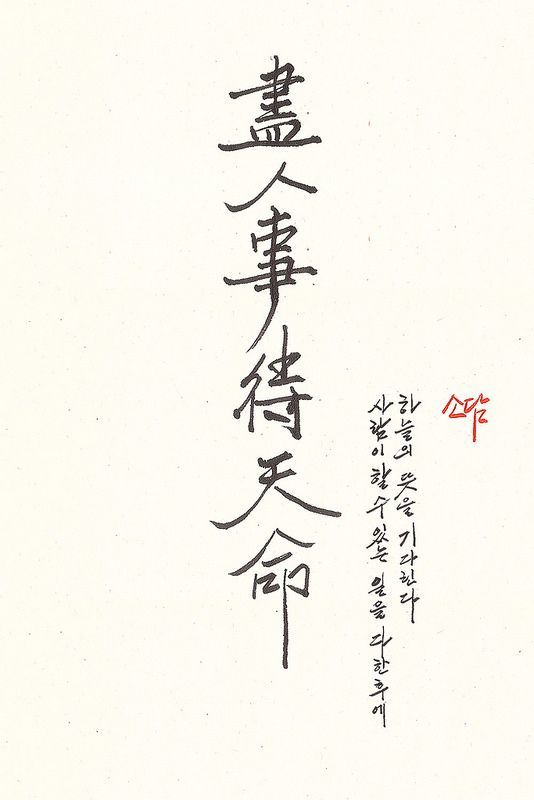 盡人事待天命
사람이 할 수 있는 일을 다한 후에
하늘의 뜻을 기다린다
소담